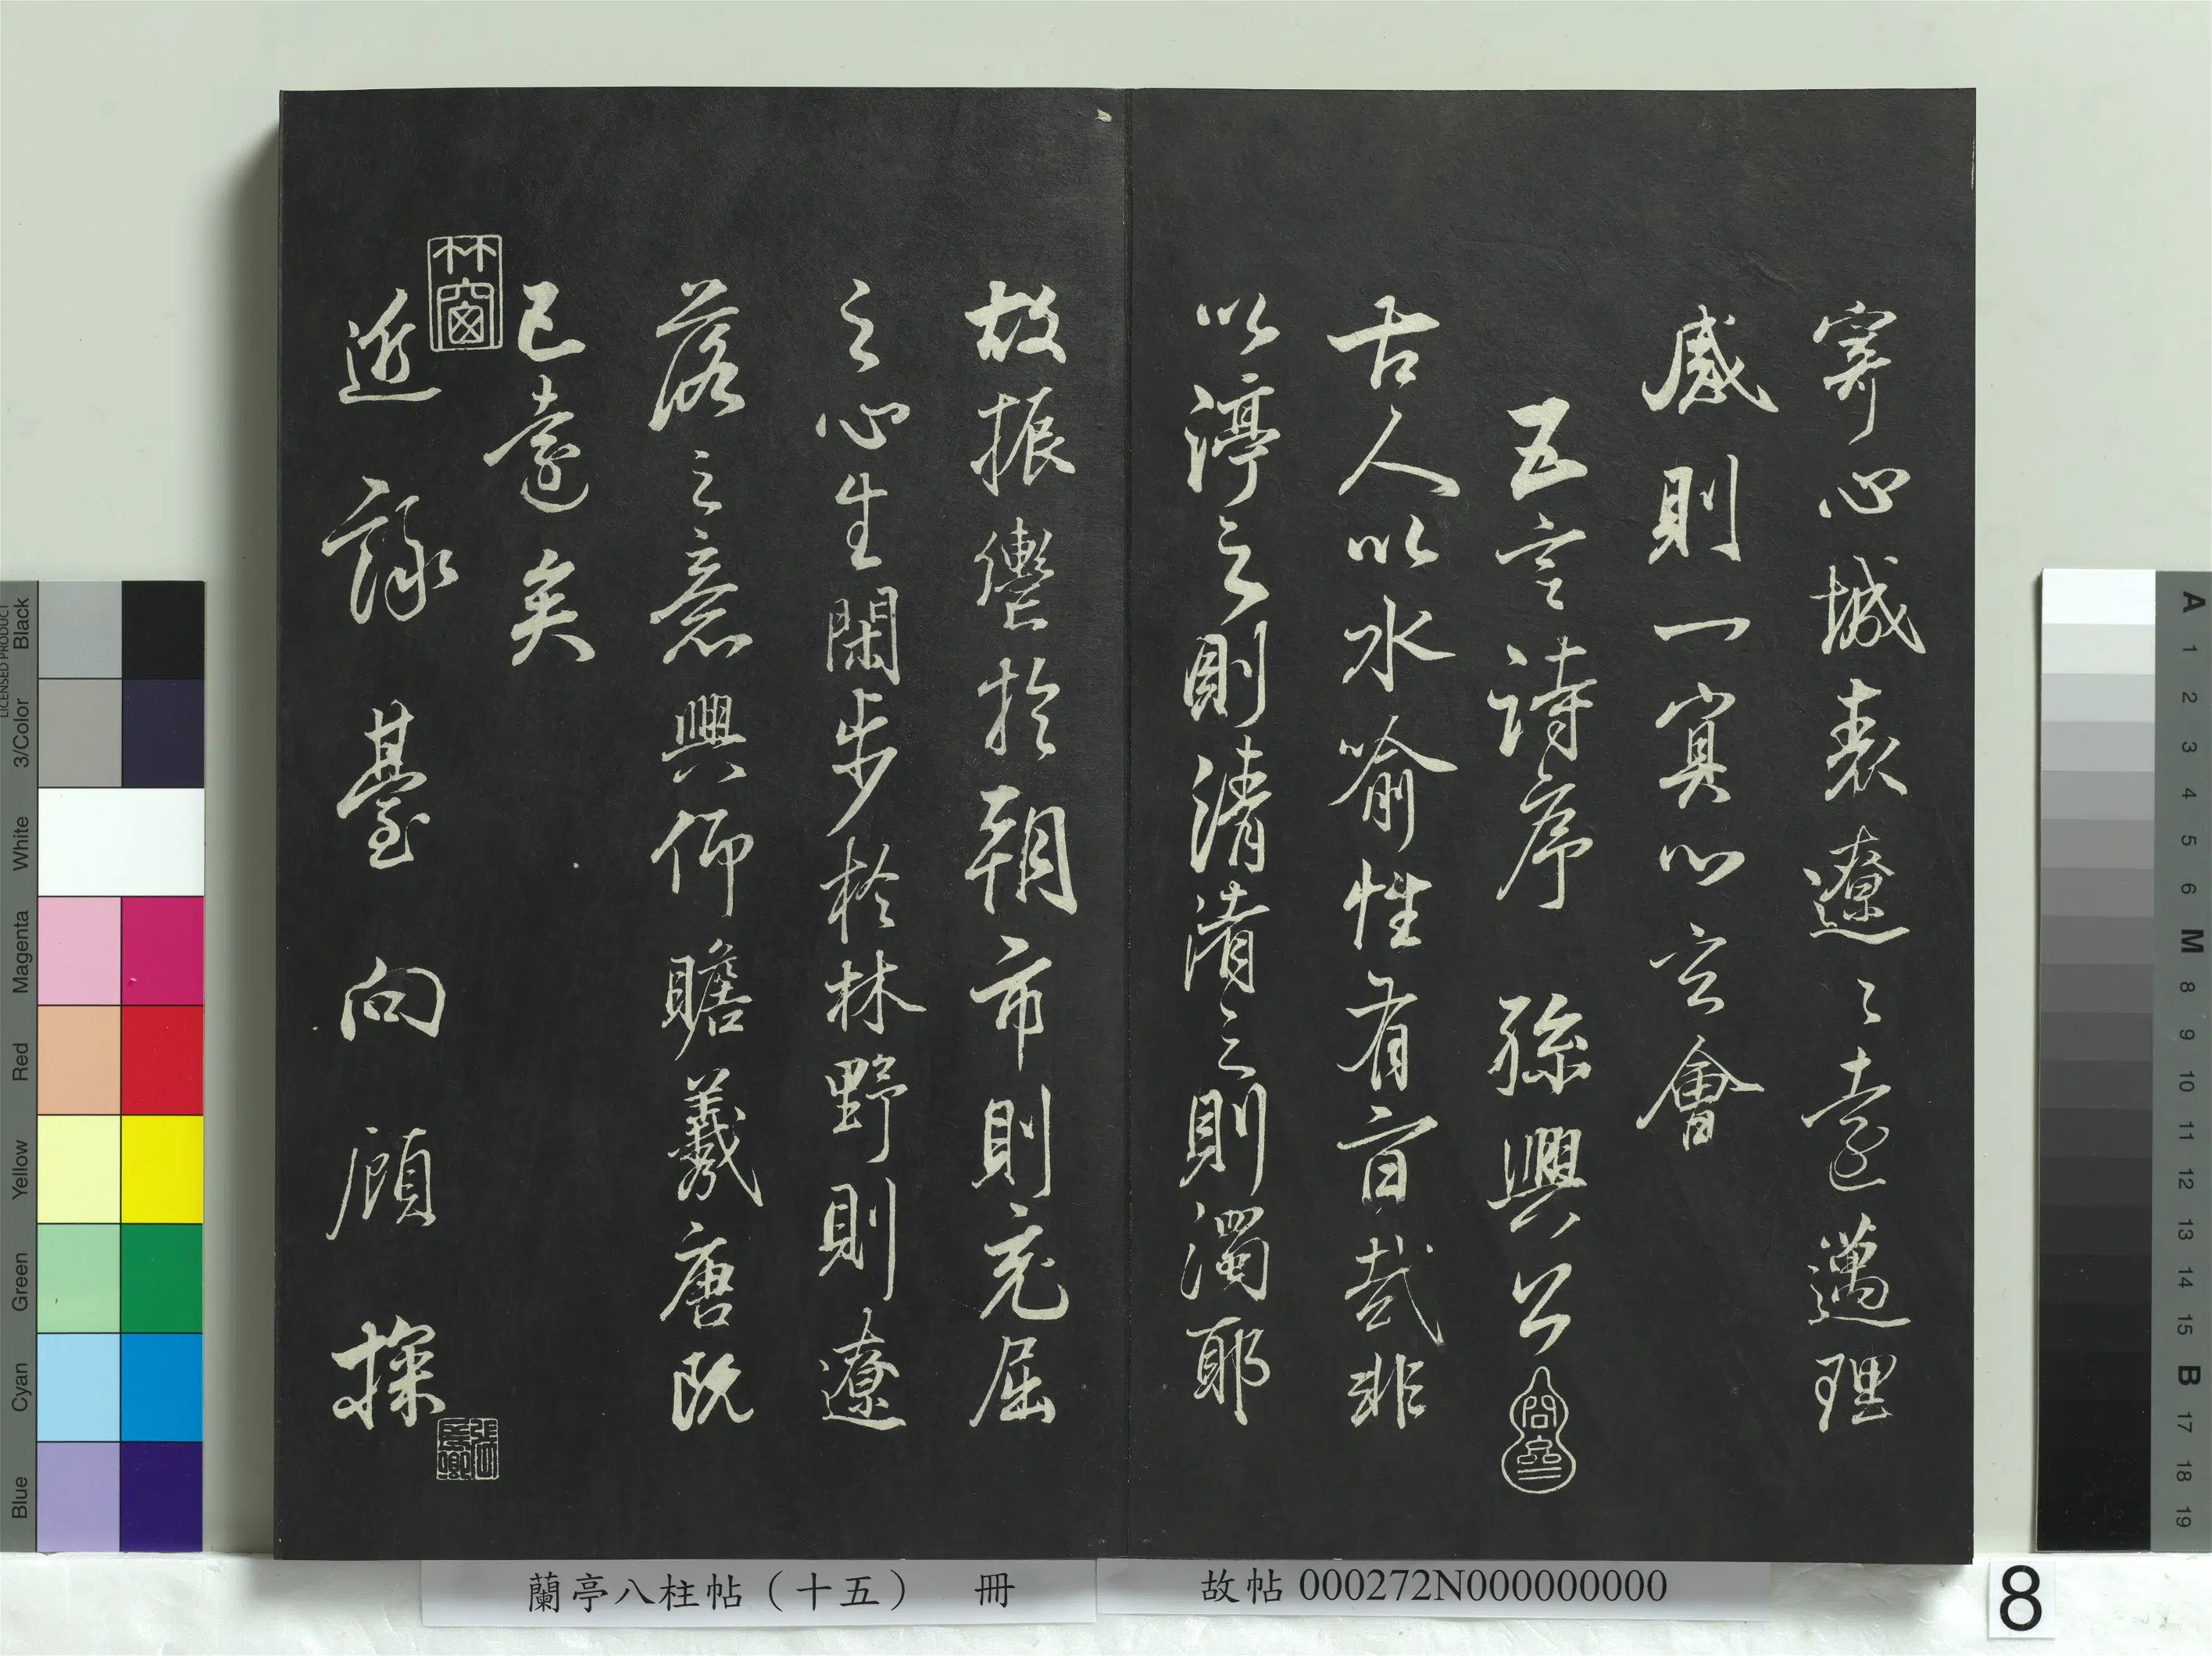 寄心域表遼〻遠邁理
感則一冥心玄會
五言詩序 孫興公
古人以水喻性有旨哉非
以渟之則清淆之則濁耶
故振轡於朝市則充屈
之心生閑步於林野則遼
落之意興仰瞻羲唐既
已遠矣
林窗
近詠臺向顧探
蘭亭八柱帖（十五） 冊
故帖 000272N000000000
8
Black
3/Color
White
Magenta
Red
Yellow
Green
Cyan
Blue
LICENSED PRODUCT
A 1 2 3 4 5 6 M 8 9 10 11 12 13 14 15 B 17 18 19